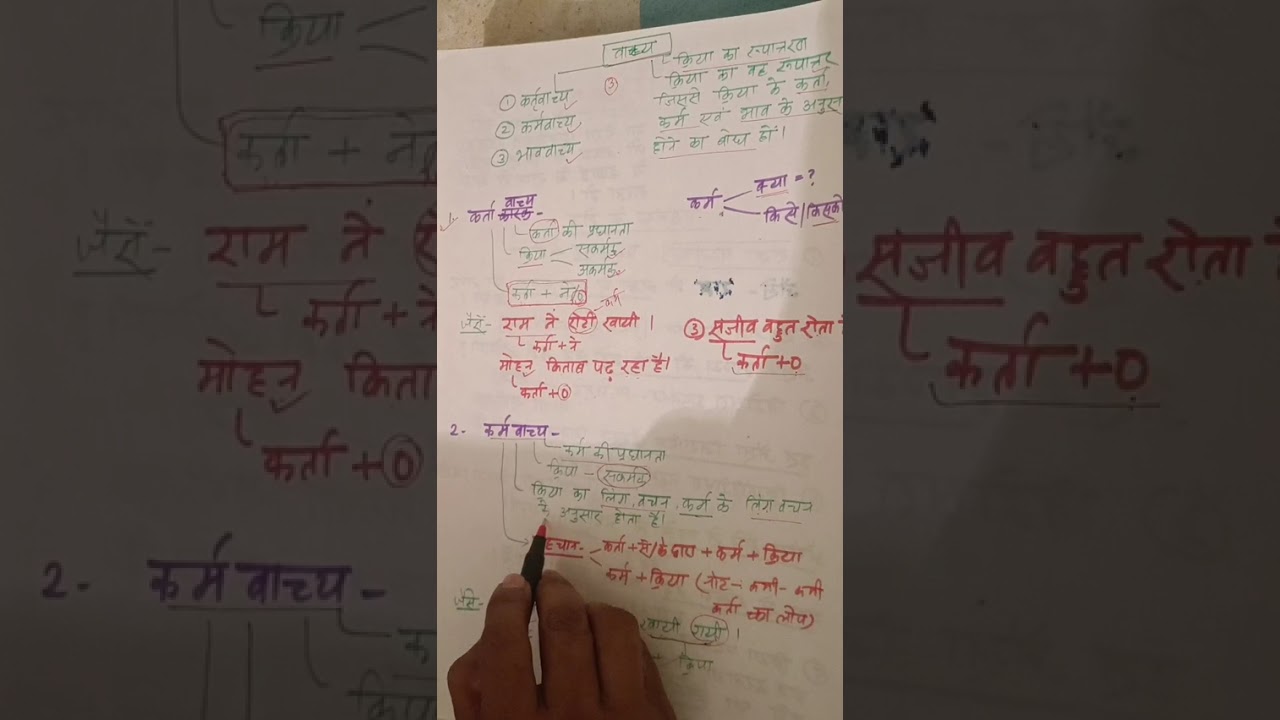 वाच्य
क्रिया का रूपान्तरण
क्रिया का वह रूपान्तर
जिससे क्रिया के कर्ता,
कर्म एवं भाव के अनुस
होने का बोध हो।
③
① कर्तृवाच्य
② कर्मवाच्य
③ भाववाच्य
कर्म
क्या = ?
किसे/किसको
1- कर्ता वाच्य -
कर्ता की प्रधानता
क्रिया
सकर्मक
अकर्मक
कर्ता + ने/0
कर्म
जैसें:- राम ने रोटी खायी ।
कर्ता + ने
मोहन किताब पढ़ रहा है।
कर्ता + 0
③ सजीव बहुत रोता है
कर्ता + 0
2- कर्म वाच्य -
कर्म की प्रधानता
क्रिया - सकर्मक
क्रिया का लिंग, वचन, कर्म के लिंग वचन
के अनुसार होता है।
हचान- कर्ता + से/के द्वारा + कर्म + क्रिया
कर्म + क्रिया (नोट - कभी - कभी
कर्ता का लोप)
जैसे-
खायी गयी ।
+ क्रिया